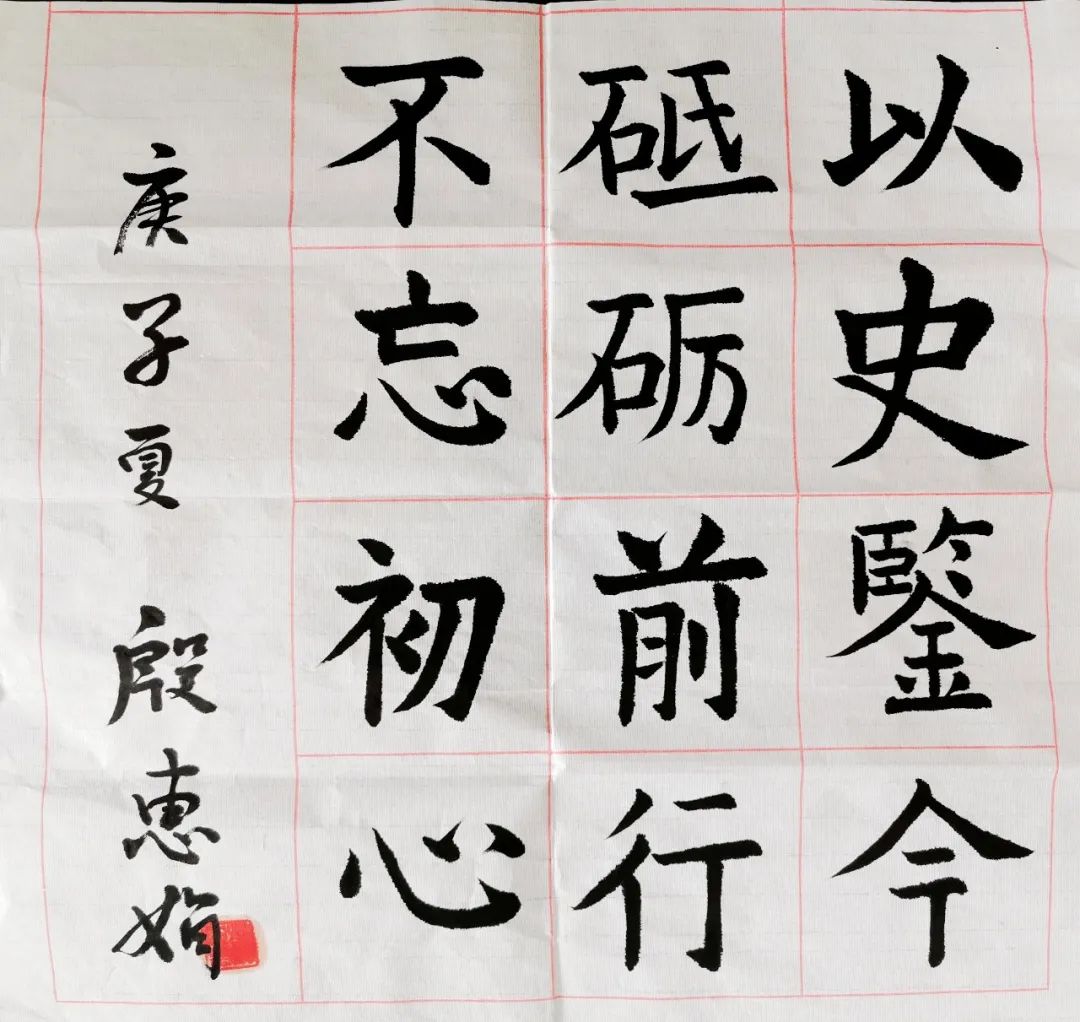 以史鋻今
砥砺前行
不忘初心
庚子夏 殷惠娟